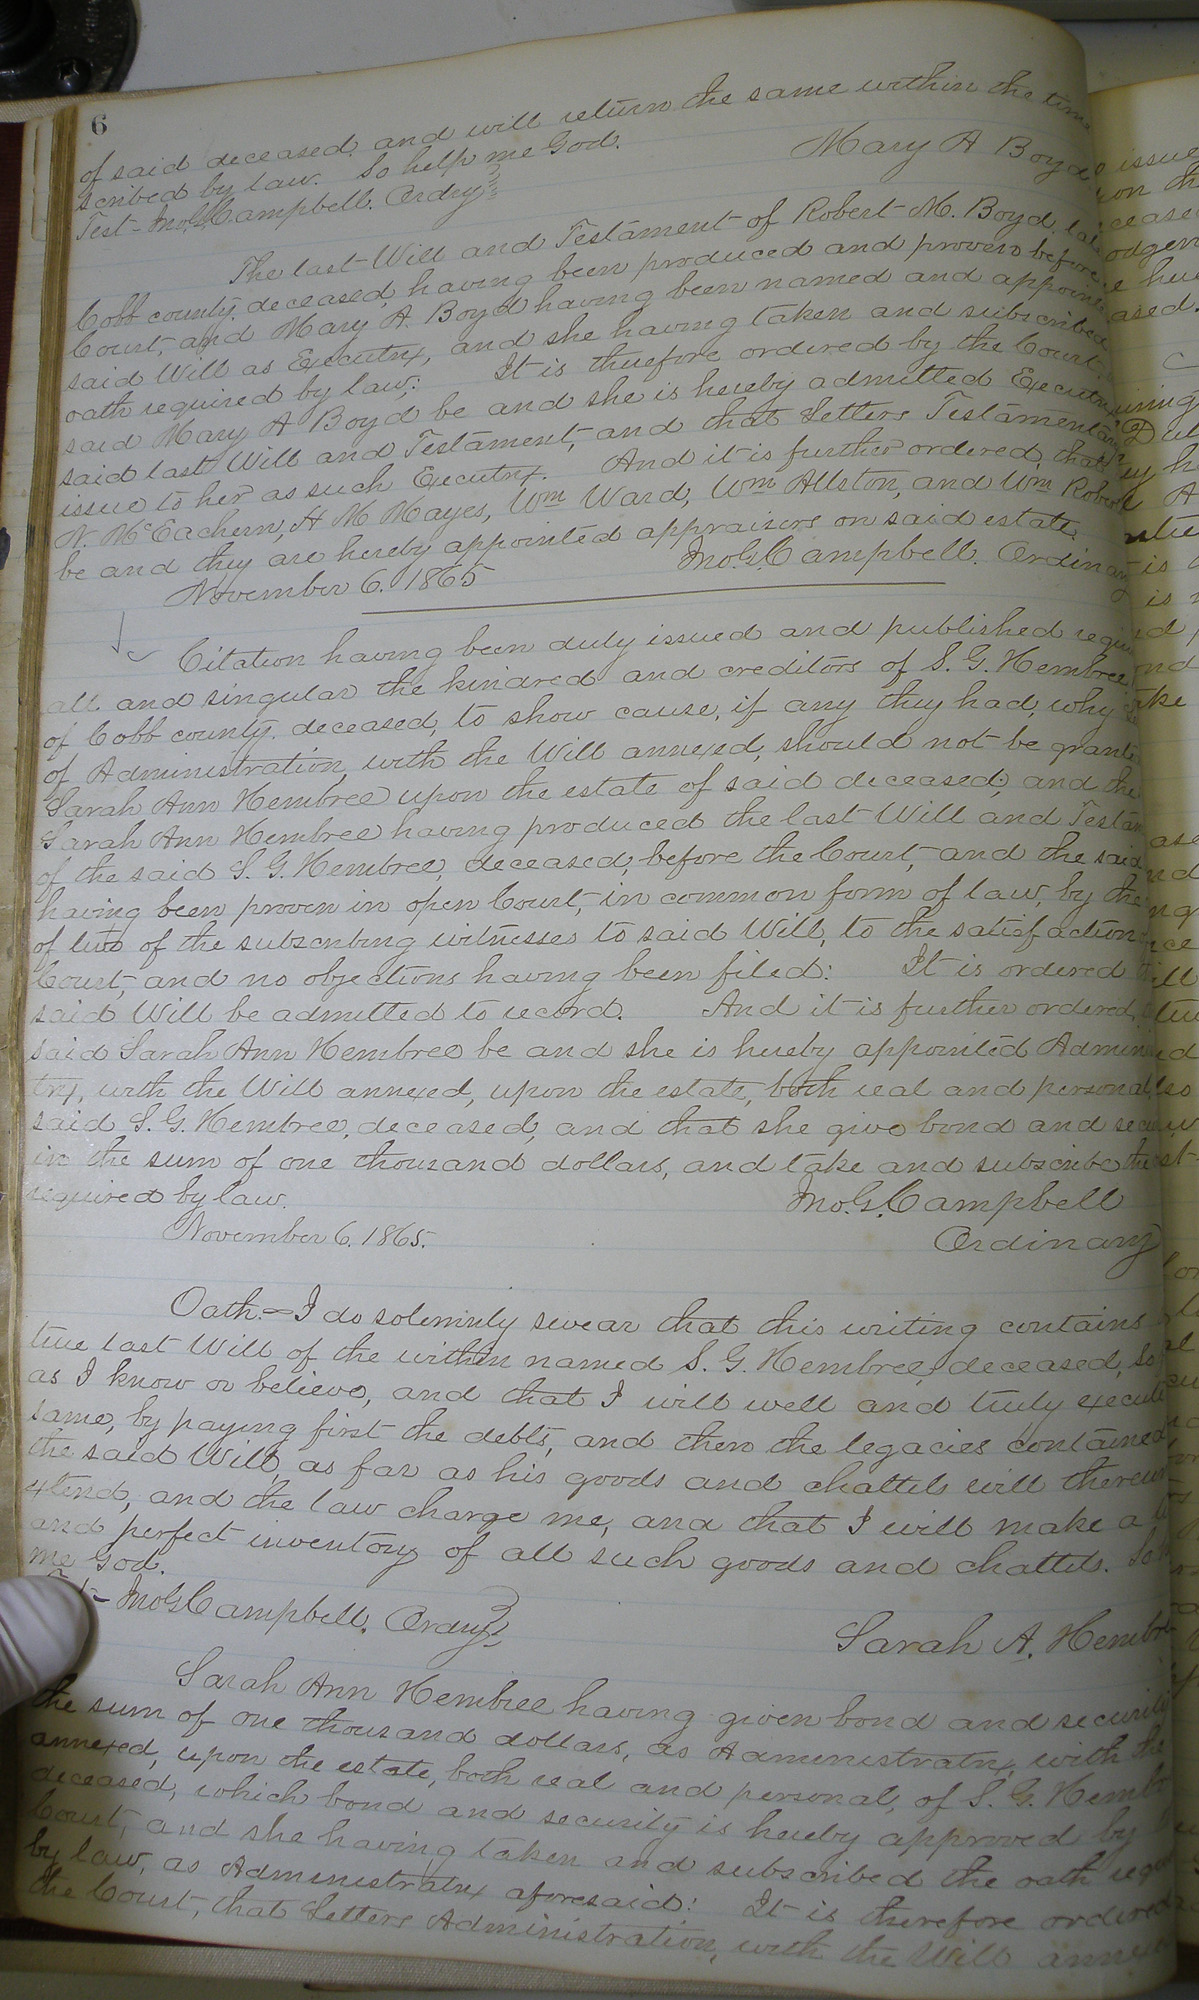 6
of said deceased, and will return the same within the time
scribed by law. So help me God.
Mary A Boyd
Test- Jno. G. Campbell. Ordry
The last Will and Testament of Robert M. Boyd, late
Cobb county, deceased, having been produced and proven before
Court, and Mary A. Boyd having been named and appointed
said Will as Executrix, and she having taken and subscribed
oath required by law; It is therefore ordered by the Court,
said Mary A Boyd be and she is hereby admitted Executrix
said last Will and Testament, and that Letters Testamentary
issue to her as such Executrix. And it is further ordered, that
N. McEachern, H M Mayes, Wm Ward, Wm Allston, and Wm Robert
be and they are hereby appointed appraisers on said estate.
November 6. 1865 Jno. G. Campbell. Ordinary
Citation having been duly issued and published requi
all and singular the kindred and creditors of S. G. Hembree
of Cobb county, deceased, to show cause, if any they had, why
of Administration, with the Will annexed, should not be grante
Sarah Ann Hembree upon the estate of said deceased; and the
Sarah Ann Hembree having produced the last Will and Testam
of the said S. G. Hembree, deceased, before the Court, and the said
having been proven in open Court, in common form of law, by the
of two of the subscribing witnesses to said Will, to the satisfaction
Court, and no objections having been filed: It is ordered
said Will be admitted to record. And it is further ordered,
said Sarah Ann Hembree be and she is hereby appointed Admin
trx, with the Will annexed, upon the estate, both real and personal,
said S. G. Hembree, deceased, and that she give bond and secu
in the sum of one thousand dollars, and take and subscribe the
required by law. Jno. G. Campbell
November 6. 1865. Ordinary
Oath.- I do solemnly swear that this writing contains
true last Will of the within named S. G. Hembree, deceased, so
as I know or believe, and that I will well and truly execute
same, by paying first the debts, and then the legacies contained
the said Will, as far as his goods and chattels will thereun
extend, and the law charge me, and that I will make a
and perfect inventory of all such goods and chattels. So
me God.
Jno. G. Campbell. Ordry
Sarah A. Hembre
Sarah Ann Hembree having given bond and security
the sum of one thousand dollars, as Administratrix, with the
annexed, upon the estate, both real and personal, of S. G. Hemb
deceased, which bond and security is hereby approved by
Court, and she having taken and subscribed the oath requi
by law, as Administratrix aforesaid: It is therefore ordered
the Court, that Letters Administration, with the Will annexe